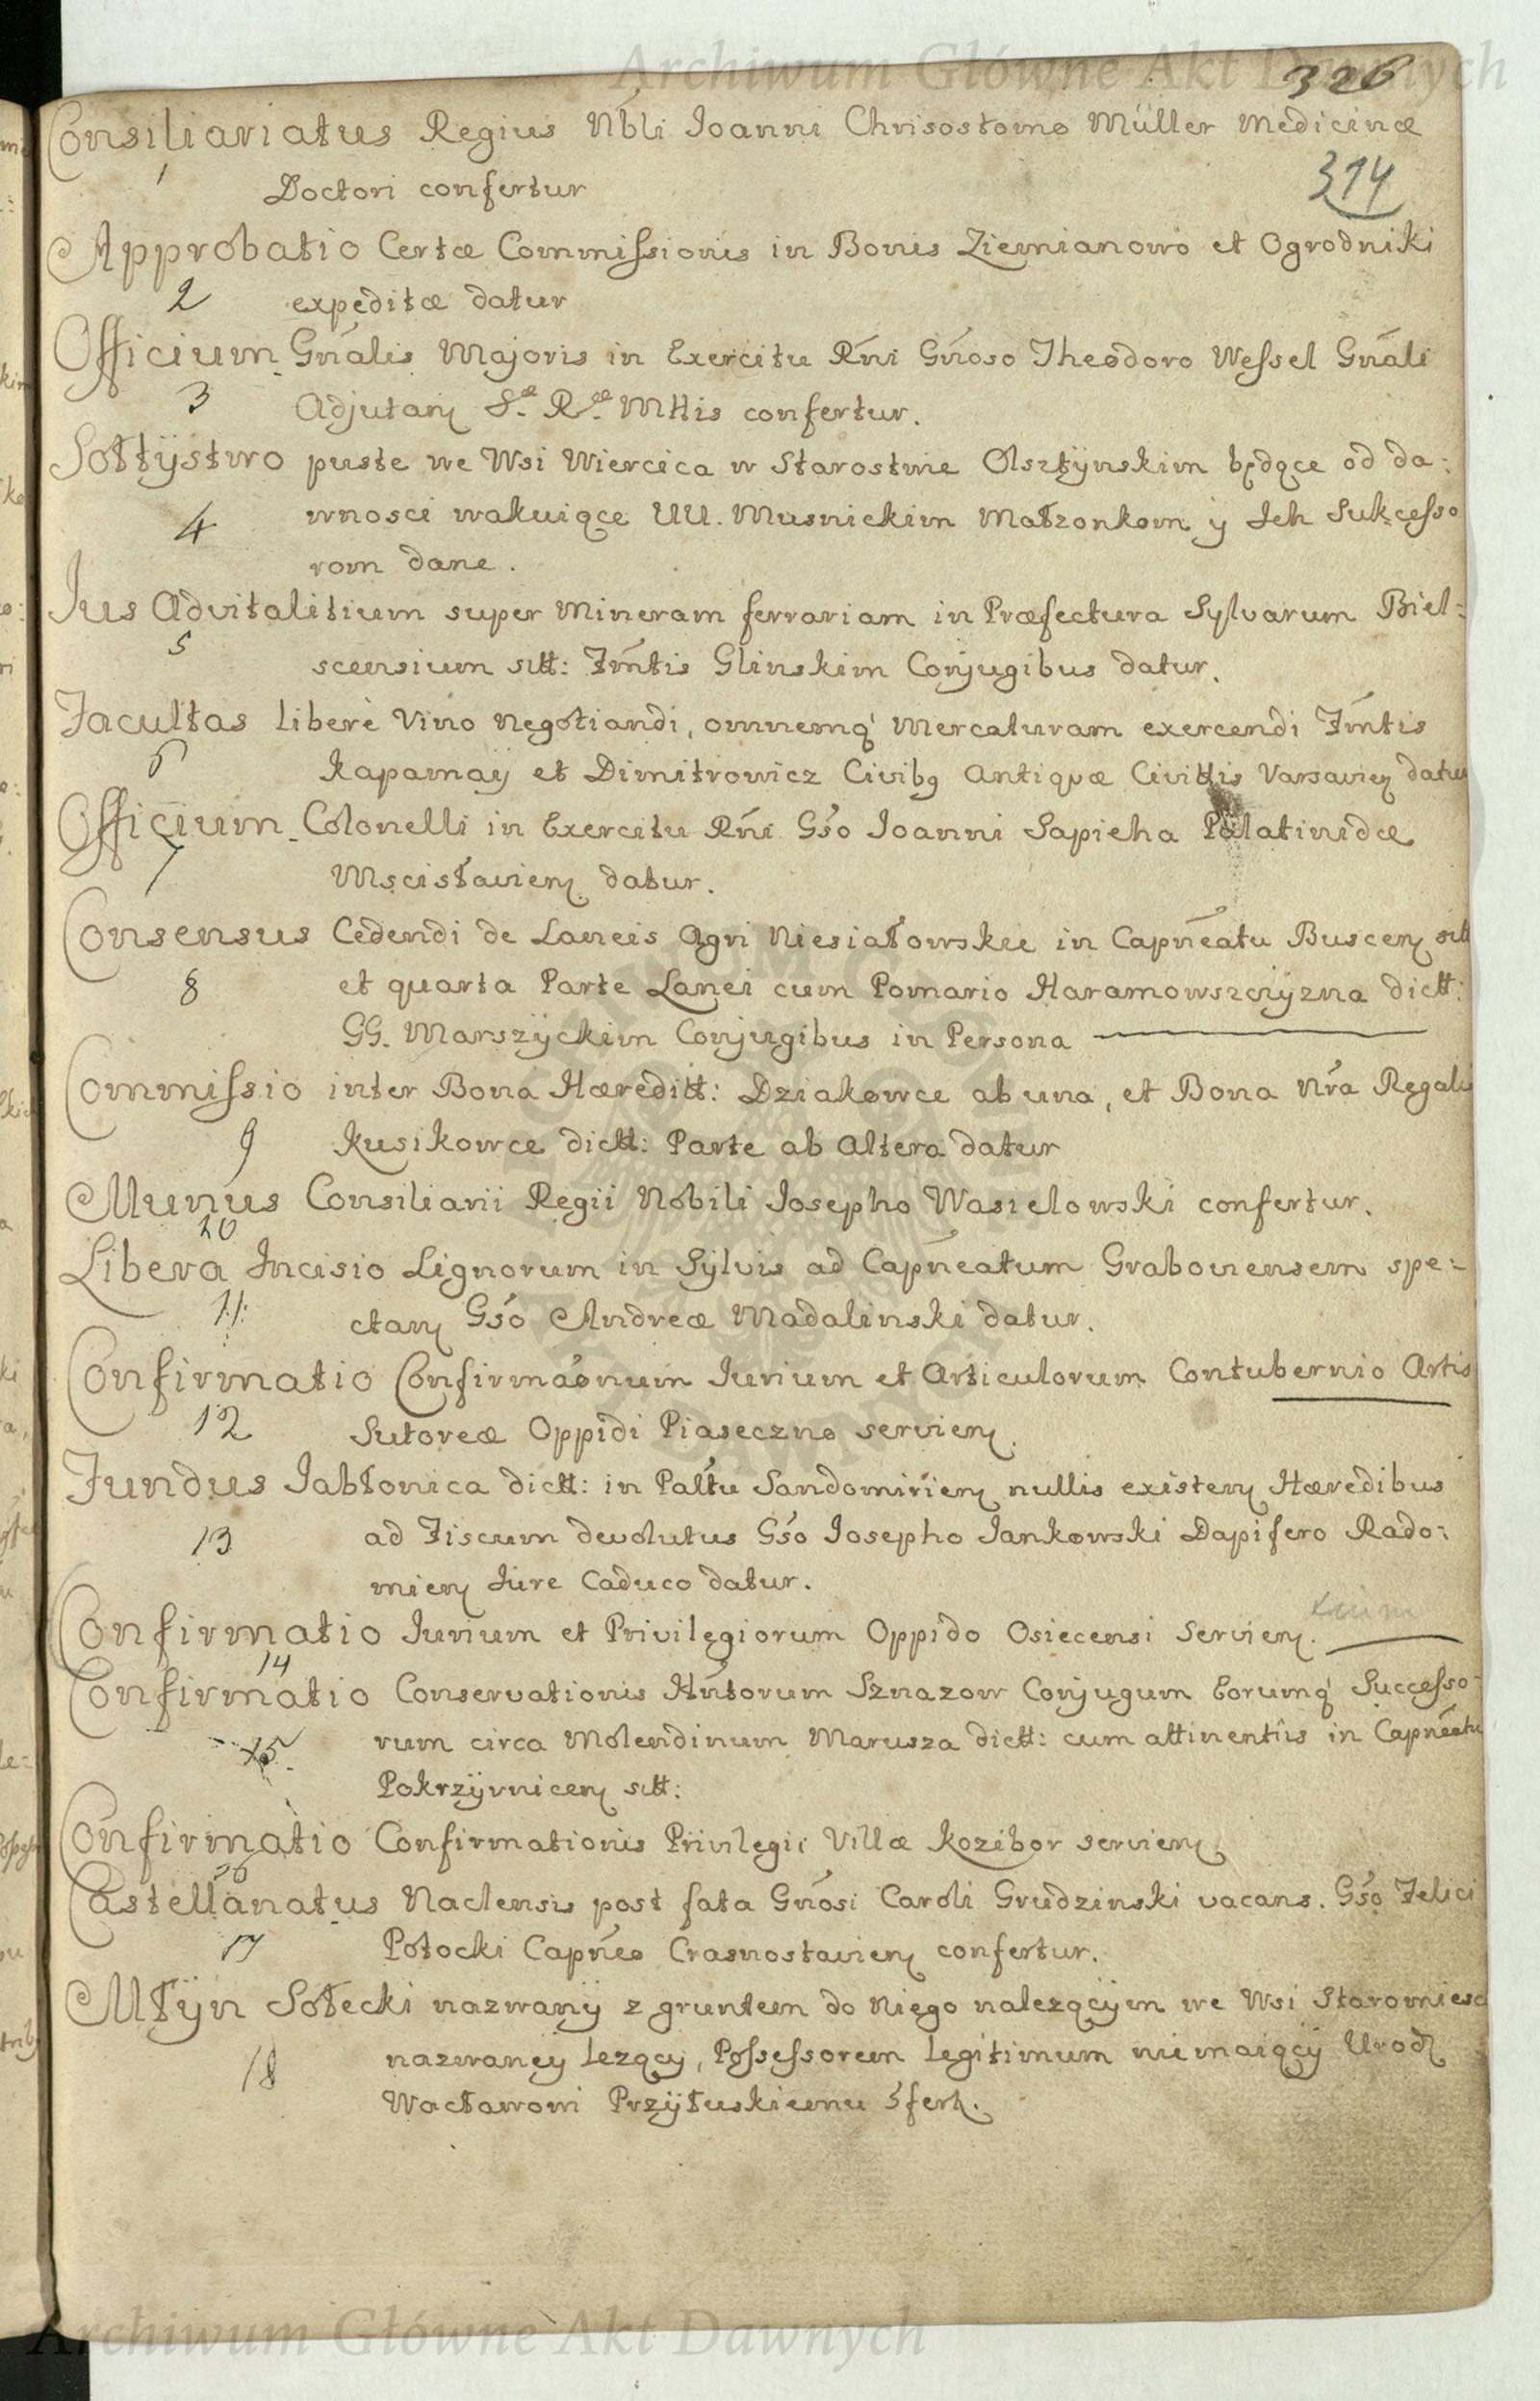 Archiwum Główne Akt Dawnych
326
Consiliariatus Regius Nbli Joanni Chrisostomo Müller Medicinæ
1 Doctori confertur
314
Approbatio Certæ Commissionis in Bonis Ziemianowo et Ogrodniki
2 expeditæ datur
Officium Gńalis Majoris in Exercitu Rńi Gńoso Theodoro Wessel Gńali
3 Adjutan S.æ R.æ Mttis confertur.
Sołtÿstwo puste we Wsi Wiercica w Starostwie Olsztÿnskim będące od da:
4 wnosci wakuiące UU. Musnickim Małżonkom ÿ Ich Sukcesso
rom dane.
Jus Advitalitium super Mineram ferrariam in Præfectura Sylvarum Biel:
5 scensium sitt: Fḿtis Glinskim Conjugibus datur.
Facultas liberè Vino Negotiandi, omnemq́ Mercaturam exercendi Fḿtis
6 Kapamaÿ et Dimitrowicz Civibq Antiquæ Civittis Varsavien datur
Officium Colonelli in Exercitu Rńi Gśo Joanni Sapieha Palatinidæ
7 Mscisłavien datur.
Consensus Cedendi de Laneis Agri Niesiałowskie in Capńeatu Buscen sitt
8 et quarta Parte Lanei cum Pomario Haramowszczÿzna dictt:
GG. Marszÿckim Conjugibus in Persona
Commissio inter Bona Hæreditt: Dziakowce ab una, et Bona Nŕa Regalia
9 Kusikowce dictt: Parte ab Altera datur
Munus Consiliarii Regii Nobili Josepho Wasielowski confertur.
10
Libera Incisio Lignorum in Sylvis ad Capńeatum Graboviensem spe:
11 ctan Gśo Andreæ Madalinski datur.
Confirmatio Confirmaónum Jurium et Articulorum Contubernio Artis
12 Sutoreæ Oppidi Piaseczno servien.
Fundus Jabłonica dictt: in Palŧu Sandomirien nullis existen Hæredibus
13 ad Fiscum devolutus Gśo Josepho Jankowski Dapifero Rado:
mien Jure Caduco datur.
Confirmatio Jurium et Privilegiorum Oppido Osiecensi Servien.
14
Confirmatio Conservationis Hńtorum Sznazow Conjugum Eorumq́ Successo:
15 rum circa Molendinum Marusza dictt: cum attinentiis in Capńeatu
Pokrzÿvnicen sitt:
Confirmatio Confirmationis Privilegii Villæ Kozibor servien
16
Castellanatus Naclensis post fata Gńosi Caroli Grudzinski vacans. Gśo Felici
17 Potocki Capńeo Crasnostavien confertur.
Młÿn Sołecki nazwanÿ z gruntem do Niego należącÿm we Wsi Staromiesc
18 nazwaneÿ leżącÿ, Possessorem legitimum niemaiącÿ Urodz
Wacławowi Przÿłuskiemu
Archiwum Główne Akt Dawnych